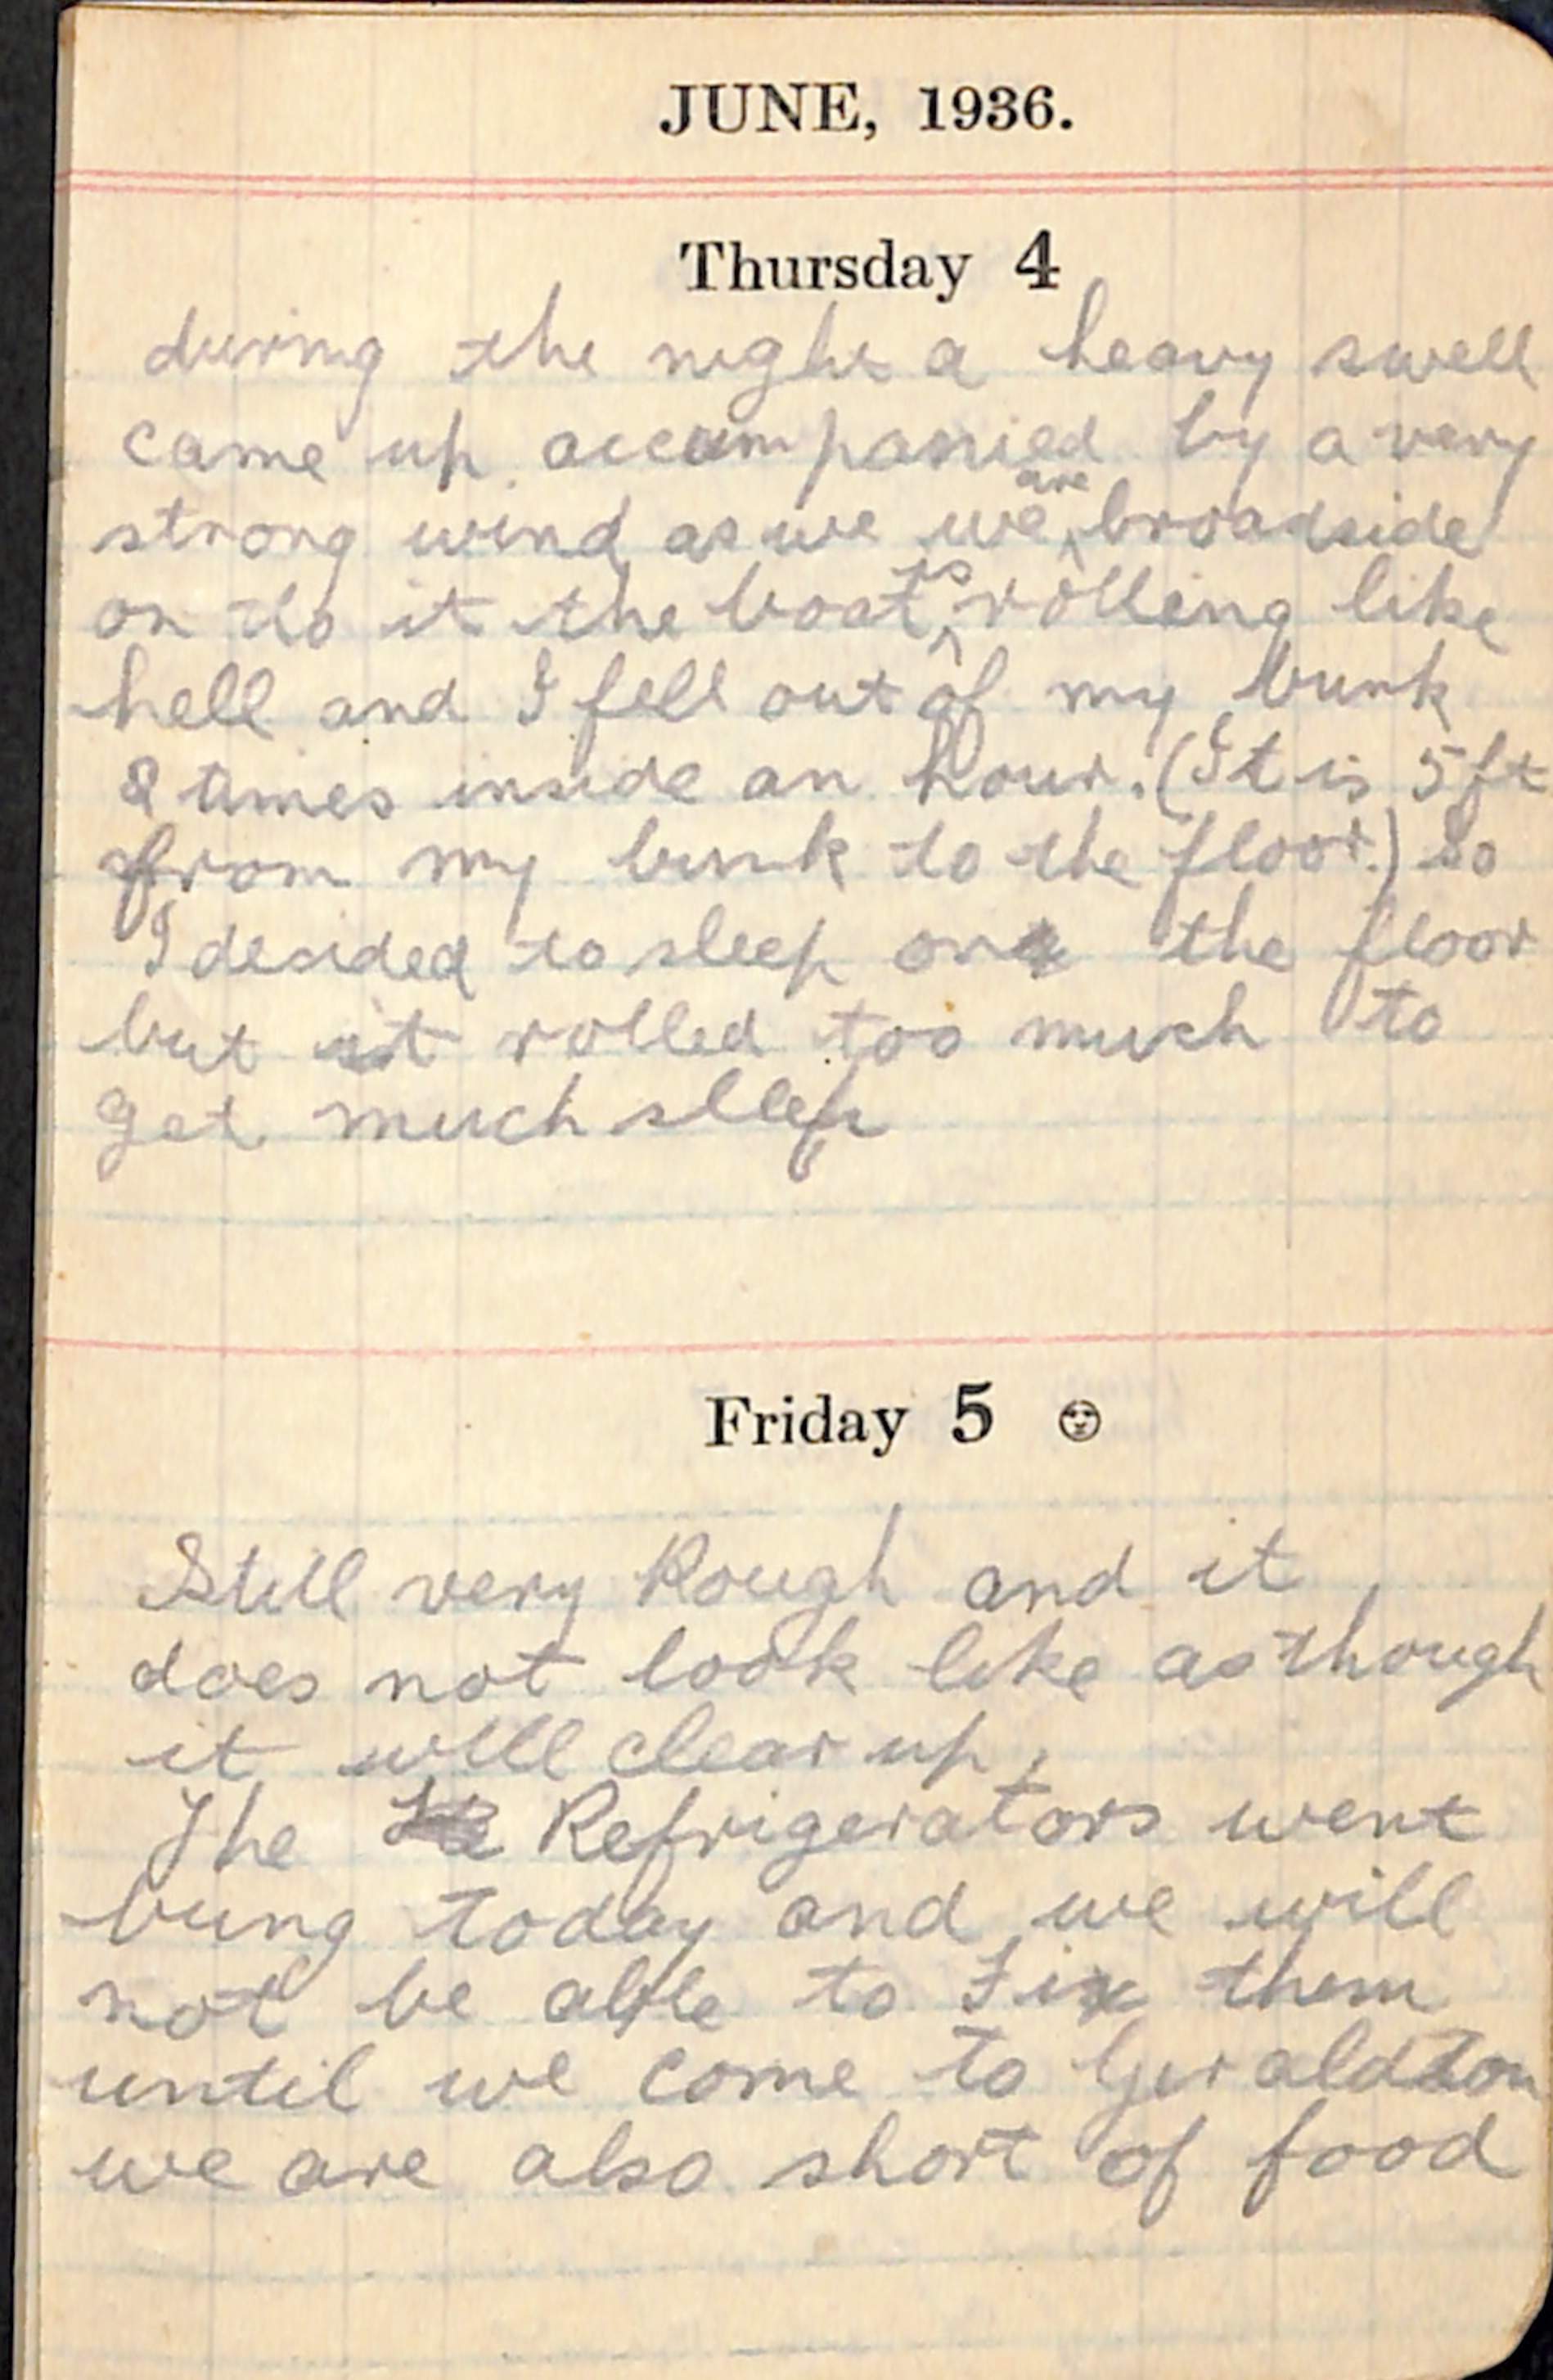 JUNE, 1936.
Thursday 4
during the night a heavy swell
came up accompanied by a very
strong wind as we we are broadside
on to it the boat is rolling like
hell and I fell out of my bunk
2 times inside an hour. (It is 5 ft
from my bunk to the floor.) So
I desided to sleep on the floor
but it rolled too much to
get much sleep
Friday 5
Still very Rough and it
does not look like as though
it will clear up.
The Refrigerators went
bung today and we will
not be able to Fix them
until we come to Geraldton
we are also short of food